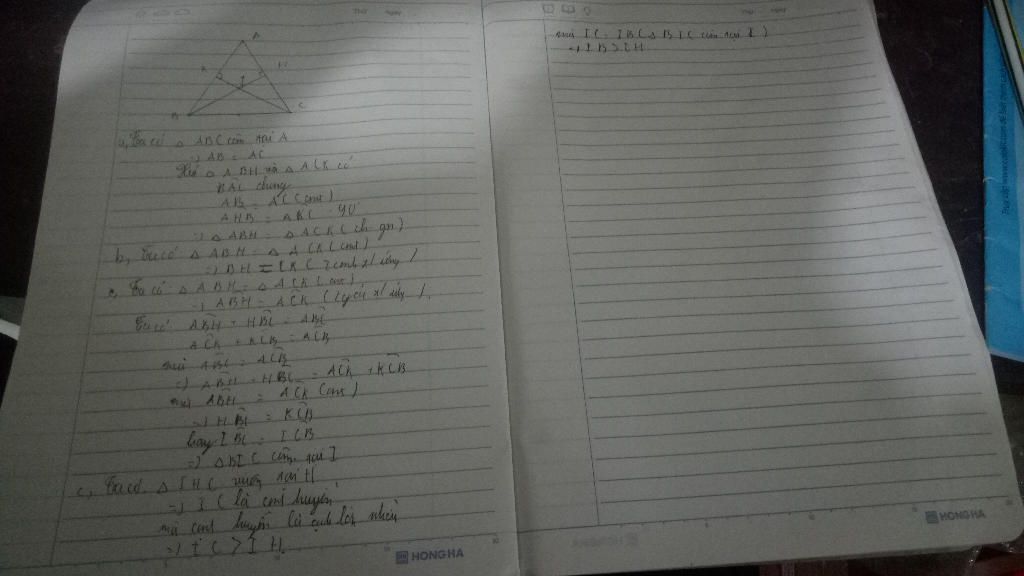 A
K
H
I
B
C
a, Ta có △ ABC cân tại A
=> AB = AC
Xét △ ABH và △ ACK có
BAC chung
AB = AC (cmt)
AHB = AKC = 90°
=> △ ABH = △ ACK (ch gn)
b, Ta có △ ABH = △ ACK (cmt)
=> BH = CK (2 cạnh t/ ứng)
Ta có △ ABH = △ ACK (cmt)
=> ABH = ACK (2 góc t/ ứng)
Ta có ABH + HBC = ABC
ACK + KCB = ACB
mà ABC = ACB
=> ABH + HBC = ACK + KCB
mà ABH = ACK (cmt)
=> HBC = KCB
hay IBC = ICB
=> △ BIC cân tại I
c, Ta có △ IHC vuông tại H
=> IC là cạnh huyền
mà cạnh huyền là cạnh lớn nhất
=> IC > IH
HONG HA
mà IC = IB (△ BIC cân tại I)
=> IB > IH
HONG HA